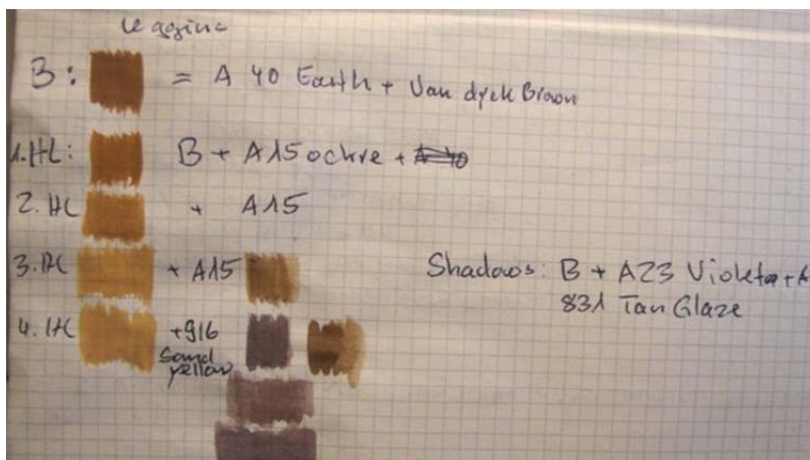 leggins
B: = A 40 Earth + Van dyck Brown
1. HL: B + A15 ochre +
2. HL + A15
3. HL + A15
4. HL +916
Sand
yellow
Shadows: B + A23 Violet
831 Tan Glaze